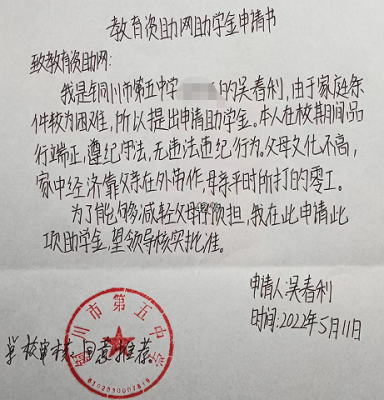 教育资助网助学金申请书
致教育资助网:
我是铜川市第五中学 的吴春利,由于家庭条
件较为困难,所以提出申请助学金。本人在校期间品
行端正,遵纪守法,无违法违纪行为。父母文化不高,
家中经济靠父亲在外劳作,母亲平时所打的零工。
为了能够减轻父母的负担,我在此申请此
项助学金,望领导核实批准。
申请人:吴春利
时间:2022年5月11日
学校审核:同意推荐。
铜川市第五中学